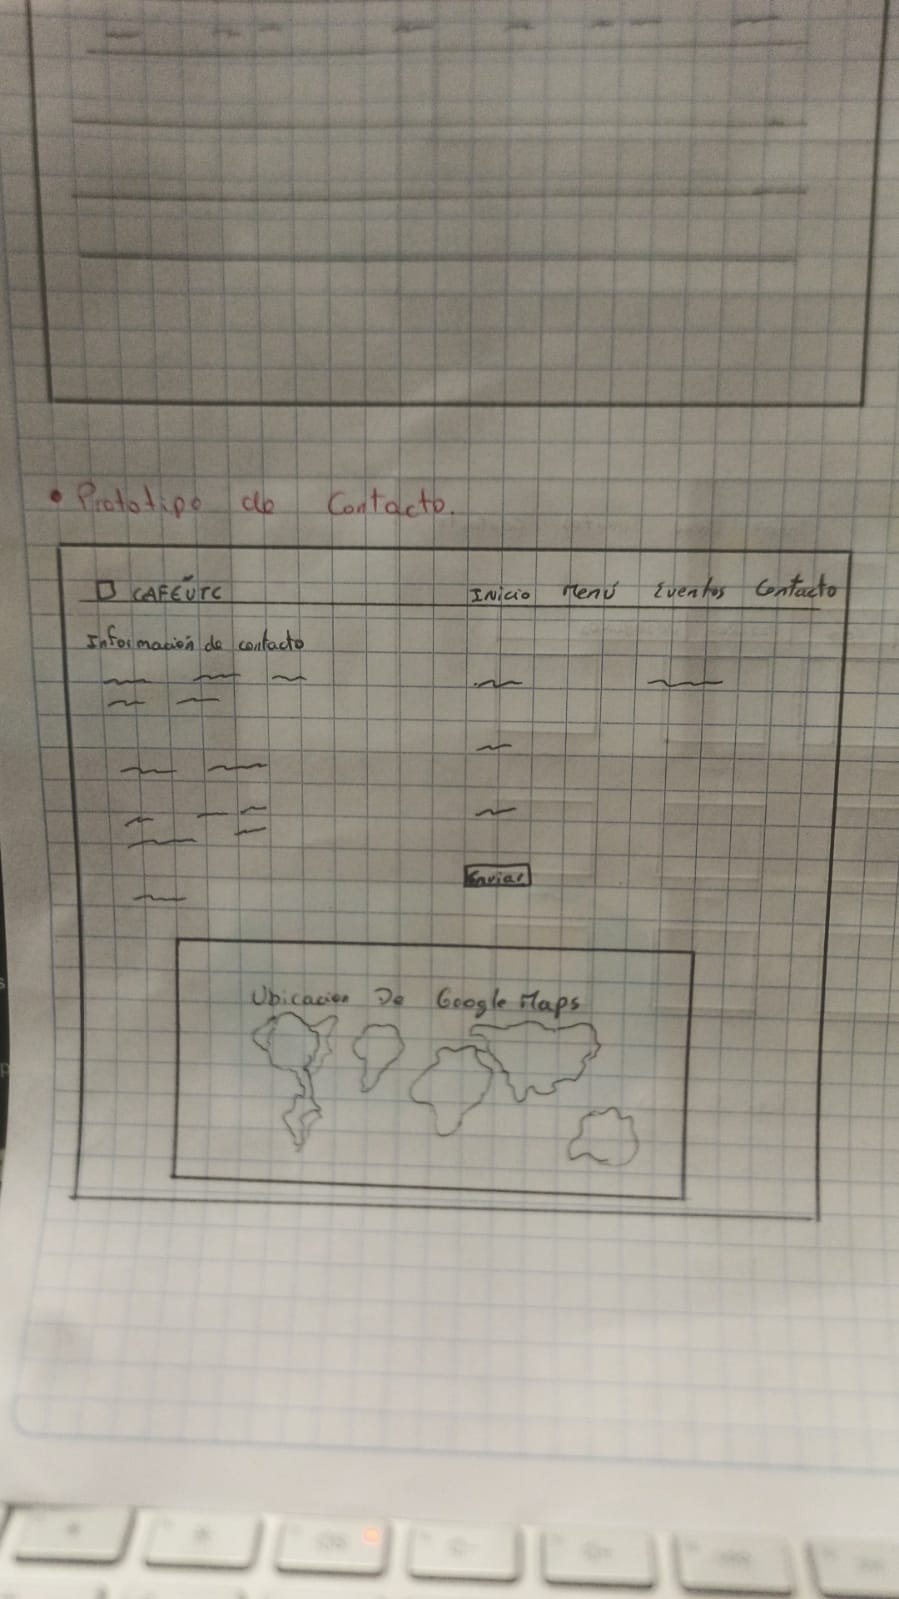 • Prototipo de Contacto.
CAFEÚTC Inicio Menú Eventos Contacto
Información de contacto
Enviar
Ubicacion De Google Maps